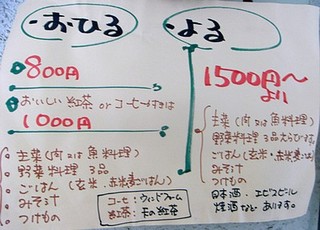 ・おひる
800円
おいしい 紅茶 or コーヒー付きは
1000円
・主菜(肉又は魚料理)
・野菜料理 3品
・ごはん(玄米・赤米麦ごはん)
・みそ汁
・つけもの
コーヒー:ウィンドファーム
紅茶:天の紅茶
・よる
1500円〜
より
・主菜(肉又は魚料理)
・野菜料理3品
・ごはん(玄米・赤米麦ごはん)
・みそ汁
・つけもの
・日本酒、エビスビール
焼酎など、あります。